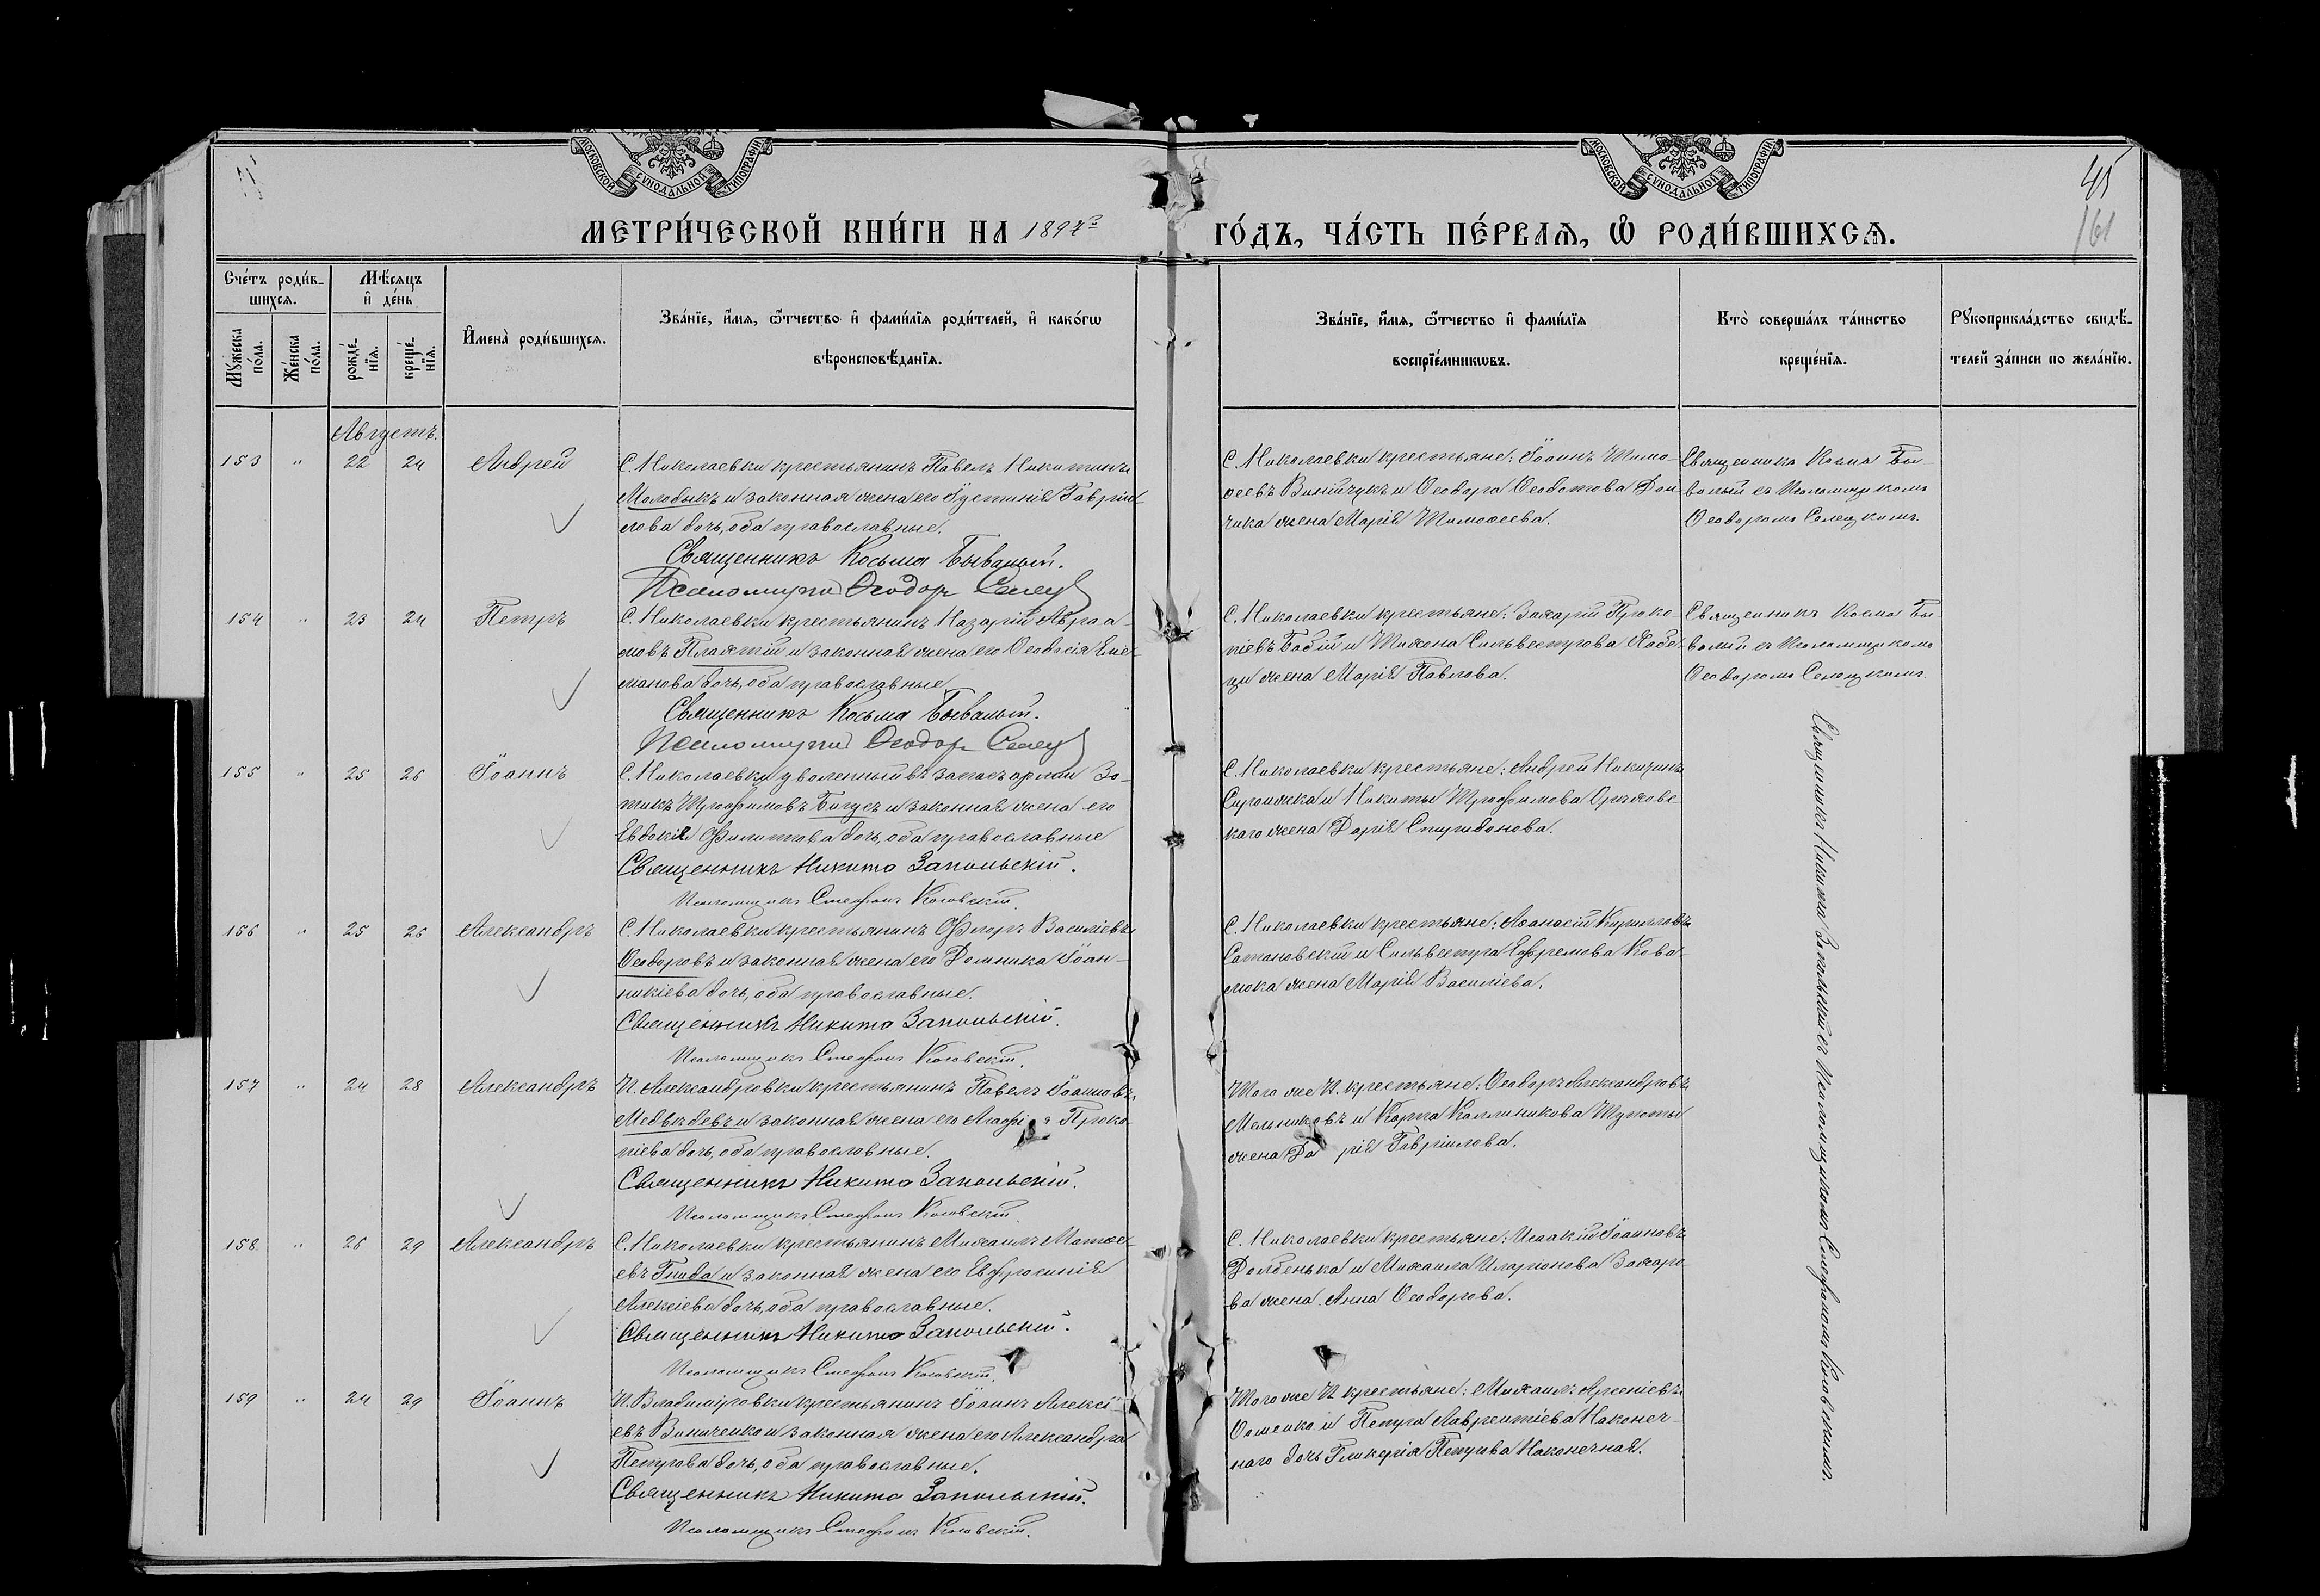 МОСКОВСКОЙ СѴНОДАЛЬНОЙ ТИПОГРАФІИ
МОСКОВСКОЙ СѴНОДАЛЬНОЙ ТИПОГРАФІИ
45
161
МЕТРИ́ЧЕСКОЙ КНИ́ГИ НА 1897
ГО́ДЪ, ЧА́СТЬ ПЕ́РВАѦ, Ѽ РОДИ́ВШИХСѦ.
Сче́тъ роди́в-
шихсѧ.
Мꙋ́жеска по́ла.
Же́нска по́ла.
Мѣ́сѧцъ
и҆ де́нь
рожде́-
нїѧ.
креще́-
нїѧ.
И҆мена̀ роди́вшихсѧ.
Зва́нїе, и҆́мѧ, ѻ҆́тчество и҆ фами́лїѧ роди́телей, и҆ како́гѡ
вѣроисповѣ́данїѧ.
Зва́нїе, и҆́мѧ, ѻ҆́тчество и҆ фами́лїѧ
воспрїе́мникѡвъ.
Кто̀ соверша́лъ та́инство
креще́нїѧ.
Рꙋкоприкла́дство свидѣ́-
телей за́писи по жела́нїю.
Августъ.
153 " 22 24 Андрей
С. Николаевки крестьянинъ Павелъ Никитинъ
Молодыкъ и законная жена его Іустинія Гавріи-
лова дочь, оба православные.
Священникъ Косьма Бывалый.
Псаломщикъ Ѳеодоръ Селец
С. Николаевки крестьяне: Іоаннъ Тимо-
ѳеевъ Винійчукъ и Ѳеодора Ѳеодотова Дон-
чика жена Марія Тимоѳеева.
Священникъ Косма Бы-
валый съ Псаломщикомъ
Ѳеодоромъ Селецкимъ.
154 " 23 24 Петръ
С. Николаевки крестьянинъ Назарій Авраа-
мовъ Плахтій и законная жена его Ѳеодосія Еме-
ліанова дочь, оба православные
Священникъ Косьма Бывалый.
Псаломщикъ Ѳеодоръ Селец
С. Николаевки крестьяне: Захарій Проко-
піевъ Бабій и Тихона Сильвестрова Хабе-
цы жена Марія Павлова.
Священникъ Косма Бы-
валый съ Псаломщикомъ
Ѳеодоромъ Селецкимъ
155 " 25 26 Іоаннъ
С. Николаевки уволенный въ запасъ арміи Зо-
тикъ Трофимовъ Бигусъ и законная жена его
Евдокія Филиппова дочь, оба православные
Священникъ Никита Запольскій.
Псаломщикъ Стефанъ Косовскій.
С. Николаевки крестьяне: Андрей Никитинъ
и Никиты Трофимова Оржховс-
каго жена Дарія Спиридонова.
156 " 25 26 Александръ
С. Николаевки крестьянинъ Флоръ Василіевъ
Ѳеодоровъ и законная жена его Домника Іоан-
никіева дочь, оба православные.
Священникъ Никита Запольскій.
Псаломщикъ Стефанъ Косовскій.
С. Николаевки крестьяне: Аѳанасій Кирилловъ
Сатановскій и Сильвестра Ефремова Кова-
люка жена Марія Василіева.
157 " 24 28 Александръ
П. Александровки крестьянинъ Павелъ Іоанновъ
Медвѣдевъ и законная жена его Агафія Проко-
піева дочь, оба православные.
Священникъ Никита Запольскій.
Псаломщикъ Стефанъ Косовскій.
Того же П. крестьяне: Ѳеодоръ Александровъ
Мельниковъ и Карпа Каллиникова
жена Дарія Гавріилова.
158 " 26 29 Александръ
С. Николаевки крестьянинъ Михаилъ Матѳе-
евъ Гнида и законная жена его Евфросинія
Алексіева дочь, оба православные.
Священникъ Никита Запольскій.
Псаломщикъ Стефанъ Косовскій.
С. Николаевки крестьяне: Исаакій Іоанновъ
Долбенька и Михаила Иларіонова Захаро-
ва жена Анна Ѳеодорова.
159 " 24 29 Іоаннъ
П. Владиміровки крестьянинъ Іоаннъ Алексі-
евъ Виниченко и законная жена его Александра
Петрова дочь, оба православные.
Священникъ Никита Запольскій.
Псаломщикъ Стефанъ Косовскій.
Того же П. крестьяне: Михаилъ Арсеніевъ
и Петра Лаврентіева Наконеч-
наго дочь Гликерія Петрова Наконечная.
Священникъ Никита Запольскій съ Псаломщикомъ Стефаномъ Косовскимъ.